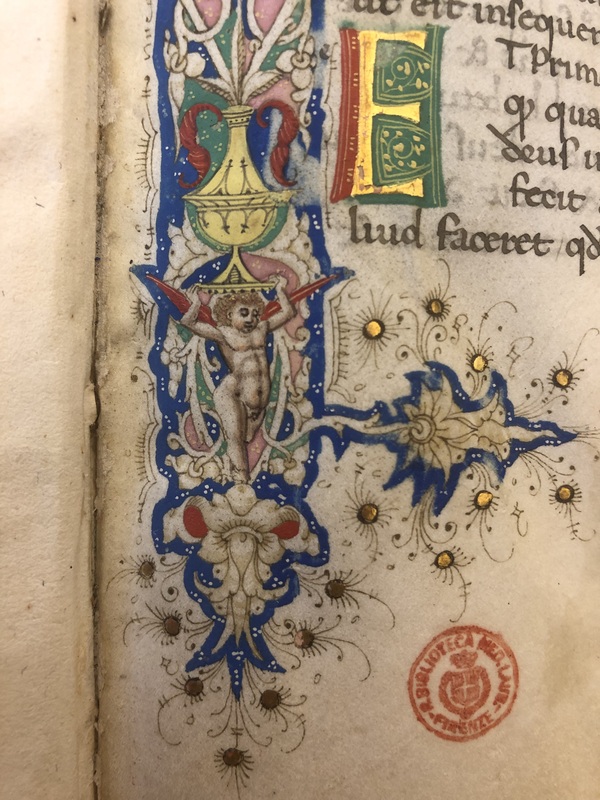 ut est inseque
T Prim
ꝙ qua
deus
fecit
E
liud faceret qđ
R. BIBLIOTECA MED. LAUR.
FIRENZE